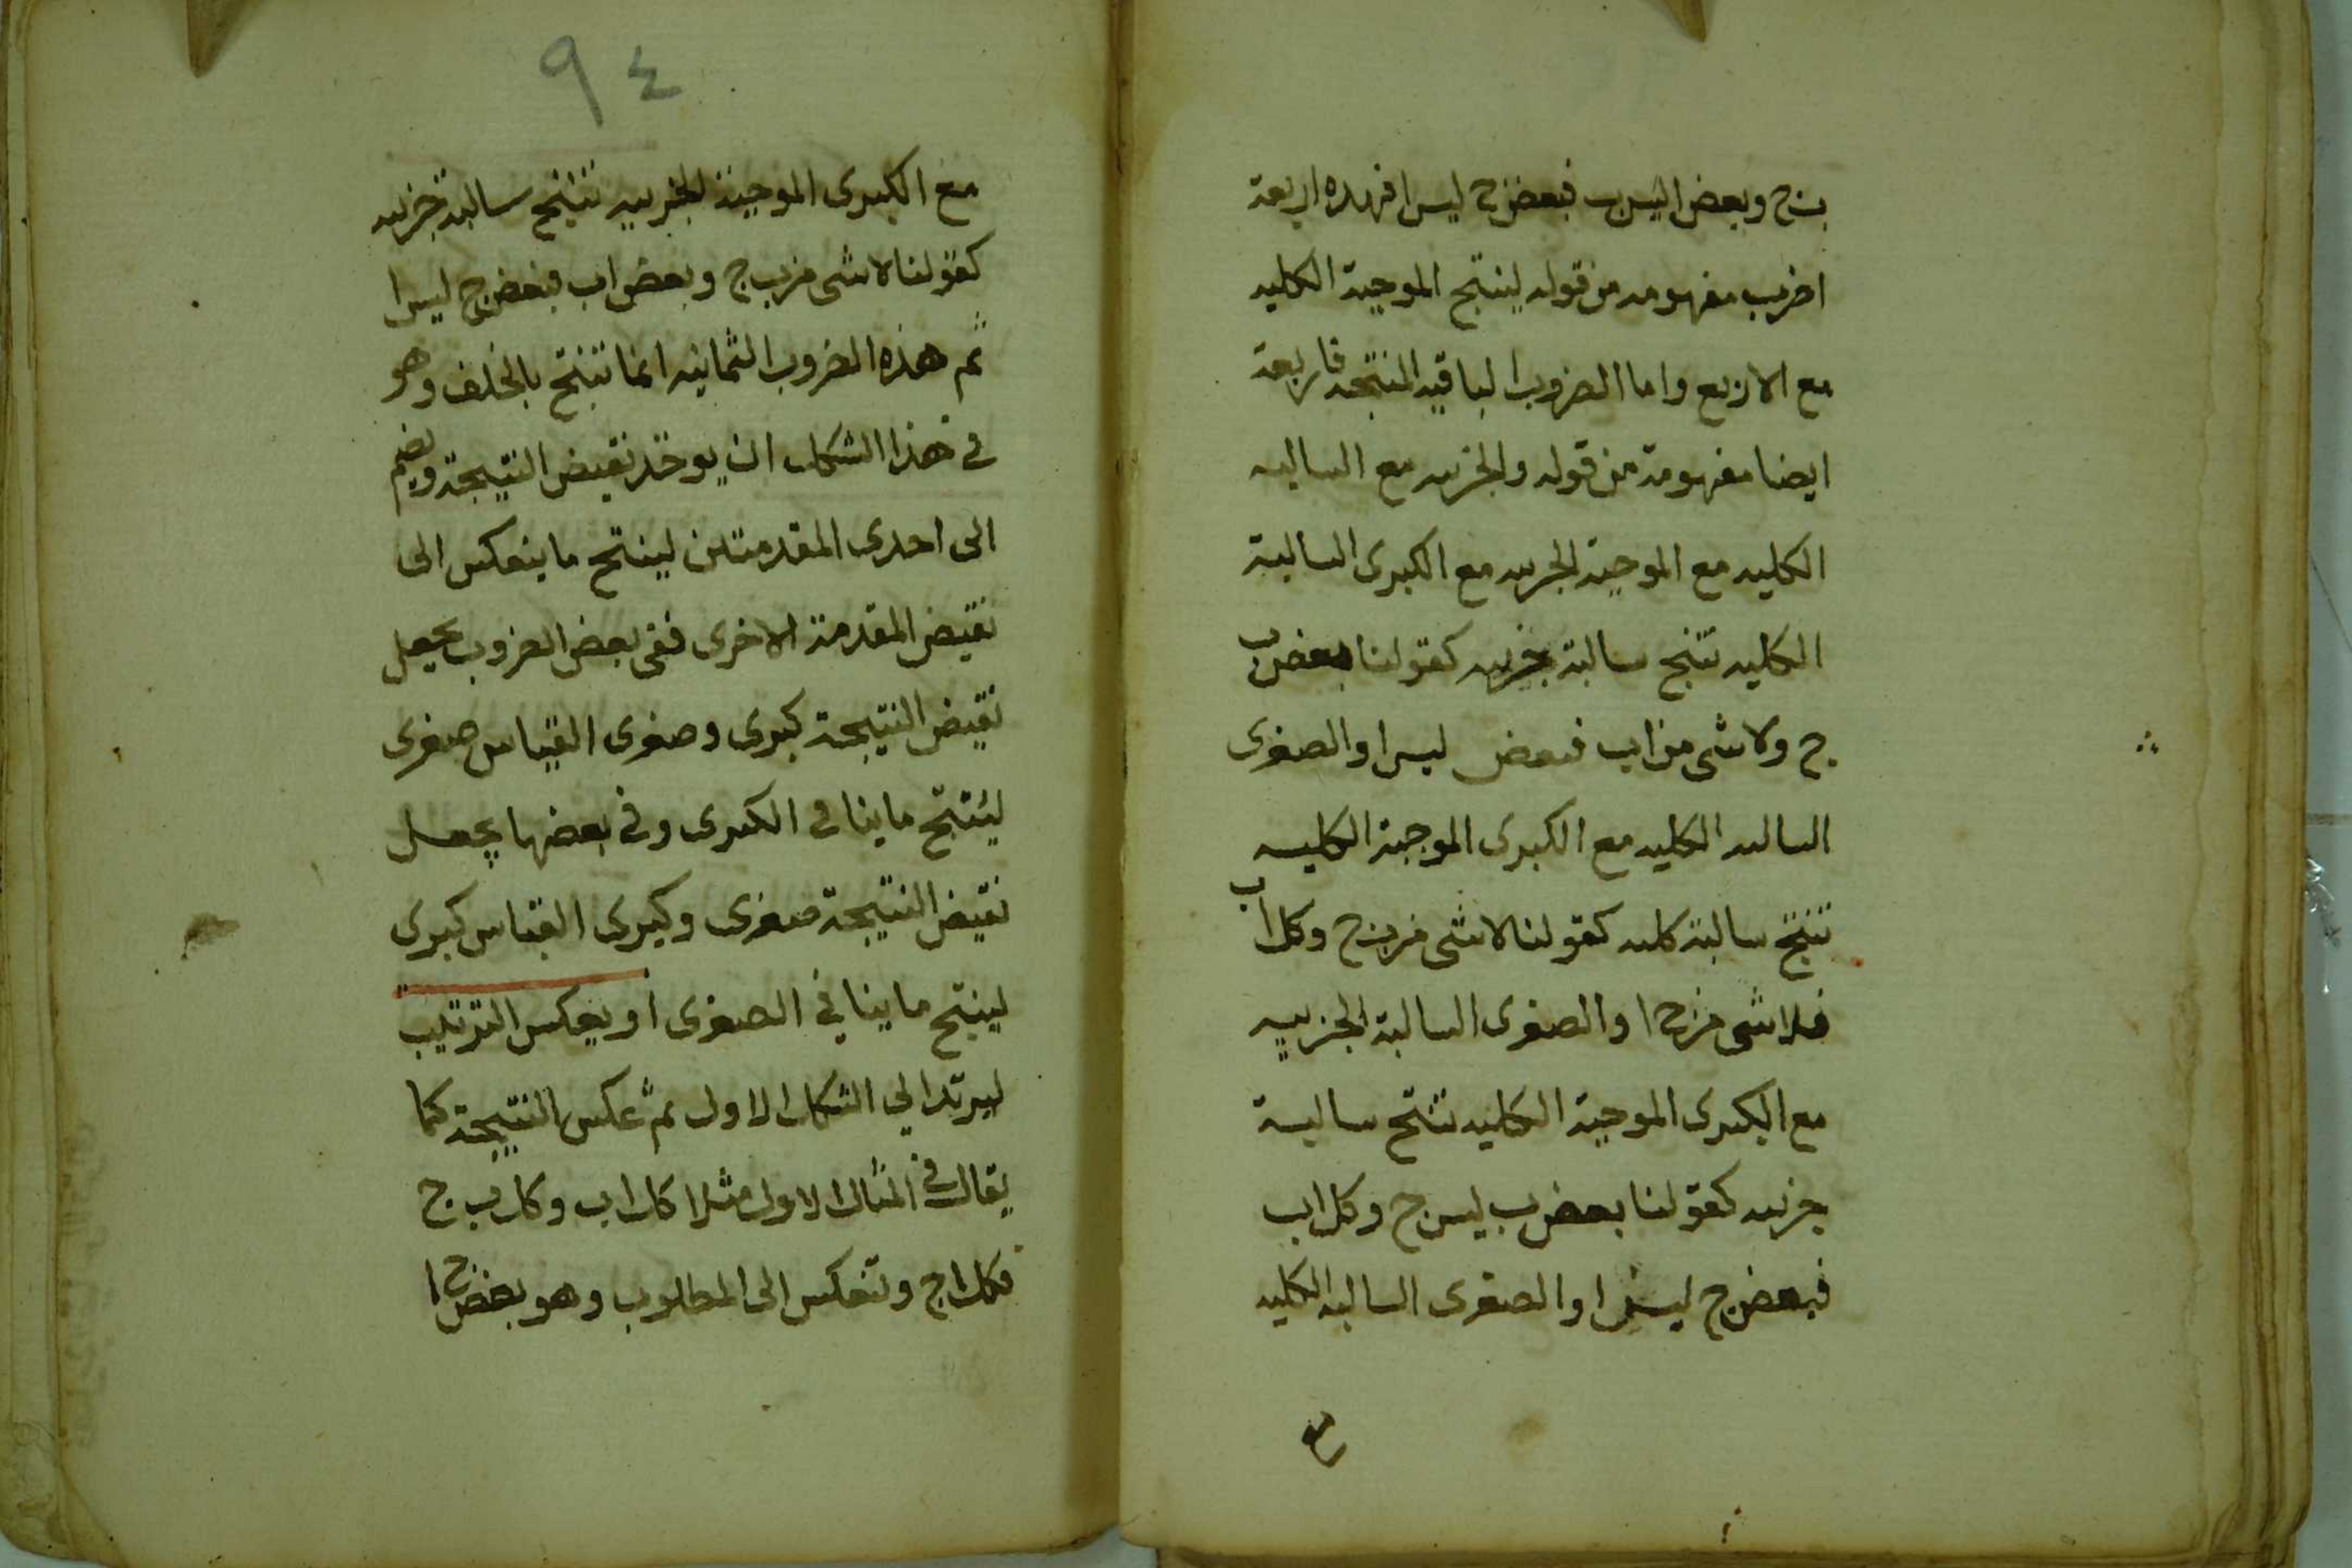 ب ج وبعض اليس ب فبعض ج ليس ا فهده اربعة
اضرب مفهومه من قوله لينتج الموجبة الكليه
مع الاربع واما الضروب الباقيه المنتجه فاربعة
ايضا مفهومة من قوله والجزيه مع السالبه
الكليه مع الموجبة الجزيه مع الكبرى السالبة
الكليه تنتج سالبة جزيه كقولنا بعض ب
ج ولا شى من اب فبعض ليس ا والصغرى
السالبه الكليه مع الكبرى الموجبة الكليه
تنتج سالبة كليه كقولنا لاشى من ب ج وكل اب
فلا شى من ج ا والصغرى السالبة الجزييه
مع الكبرى الموجبة الكليه تنتج سالبة
جزيه كقولنا بعض ب ليس ج وكل اب
فبعض ج ليس ا والصغرى السالبه الكليه
مع
٩٤
مع الكبرى الموجبة الجزييه تنتج سالبة جزيه
كقولنا لا شى من ب ج وبعض اب فبعض ج ليس ا
ثم هذه الضروب الثمانيه انما تنتج بالخلف وهو
في هذا الشكل ان يوخذ نقيض النتيجة ويضم
الى احدى المقدمتين لينتج ما ينعكس الى
نقيض المقدمة الاخرى ففي بعض الضروب يجعل
نقيض النتيجة كبرى وصغرى القياس صغرى
لينتج ما ينافي الكبرى وفي بعضها يجعل
نقيض النتيجة صغرى وكبرى القياس كبرى
لينتج ما ينافي الصغرى او بعكس الترتيب
ليرتد الي الشكل الاول ثم عكس النتيجة كما
يقال في المثال الاول مثلا كل اب وكل ب ج
فكل ا ج وتنعكس الى المطلوب وهو بعض ج ا